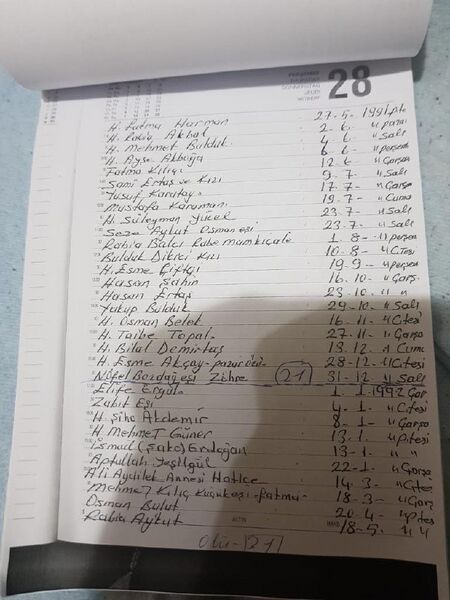 PERŞEMBE
THURSDAY
DONNERSTAG
JEUDI
28
H. Fatma Harman 27-5-1991 pte
H. Rabia Akbal 2-6- " pazar
H. Mehmet Bulduk 4-6 " Salı
H. Ayşe Akboğa 6-6- " perşem
Fatma Kılıçı 12-6- " Çarşa
Sami Ertaş ve Kızı 9-7 " Salı
Yusuf Karatay 17-7- " Çarşa
Mustafa Karamani 19-7- " Cuma
H. Süleyman Yücel 23-7- " Salı
Seze Aykut Osman eşi 23-7- " Salı
Rabia Balcı 1-8- " perşem
Bulduk Dibici Kızı 10-8- " C.Tesi
H. Esme Çiftçi 19-9- " perşem
Hasan Şahin 16-10- " Çarş.
Hasan Ertaş 23-10 " "
Yakup Bulduk 29-10- " Salı
H. Osman Belek 16-11- " Ctesi
H. Taibe Topal 27-11- " Çarşa
H. Bilal Demirtaş 13-12- " Cuma
H. Esme Akçay 28-12- " Ctesi
Nüfel Bozdağ eşi Zehre 21 31-12- " Salı
Elife Ergül 1-1-1992 Çar
Zabit Eşi 4-1- " Ctesi
H. Şiha Akdemir 8-1- " Çarşa
H. Mehmet Güner 13-1- " p.tesi
İsmail (Şako) Erdoğan 13-1- " "
Aptullah Yeşilgül 22-1- " Çarşa
Ali Aydilek Annesi Hatice 14-3- " Ctesi
Mehmet Kılıç Fatma 18-3- " Çarş
Osman Bulut 20-4- " ptesi
Rabia Aykut 18-5- " "